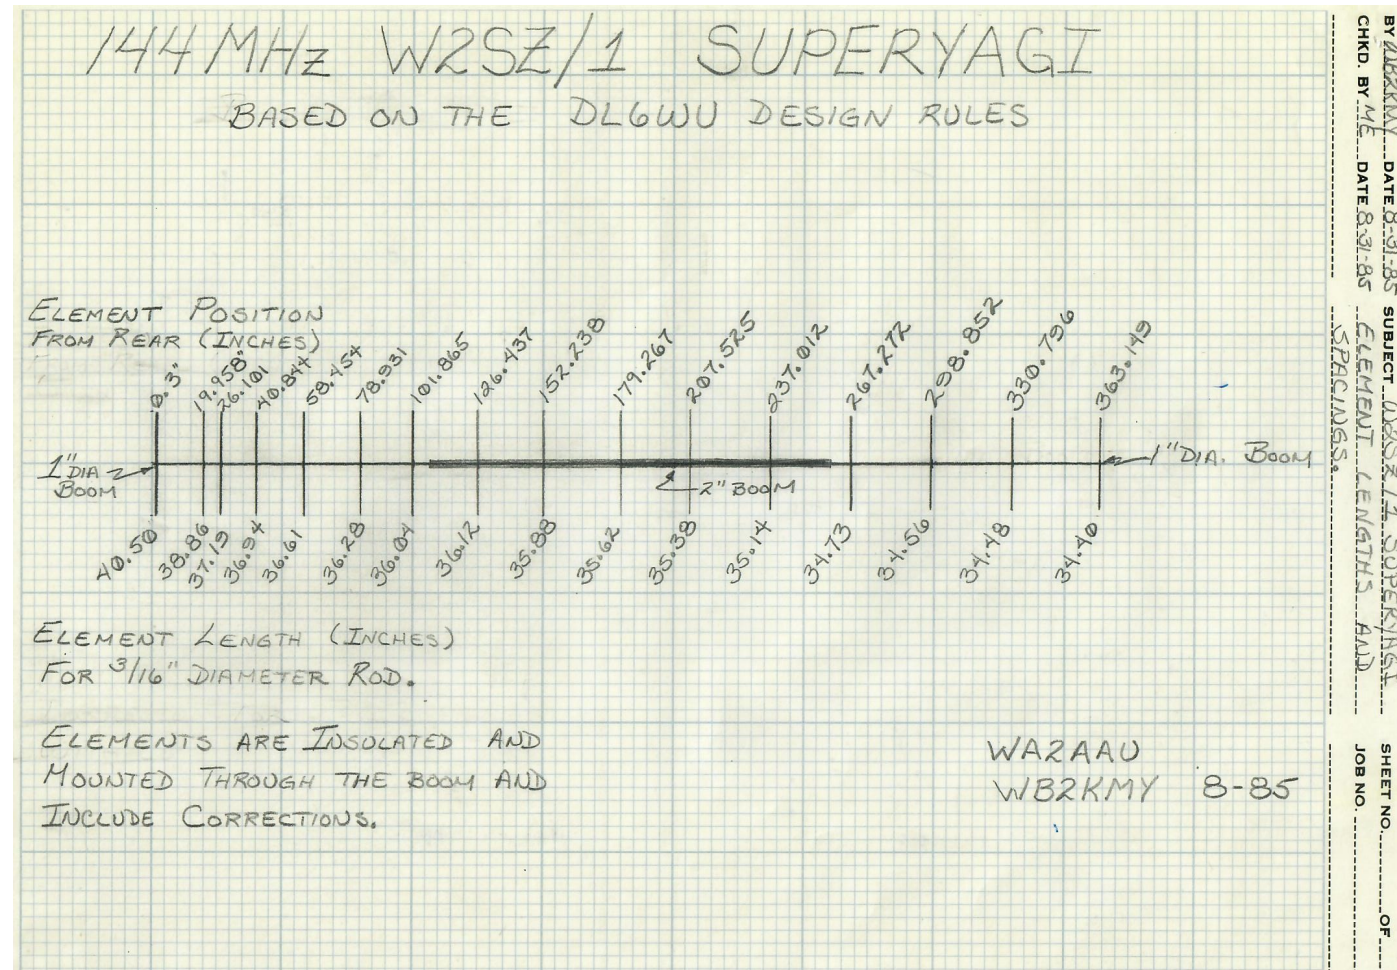 144 MHz W2SZ/1 SUPERYAGI
BASED ON THE DL6WU DESIGN RULES
ELEMENT POSITION
FROM REAR (INCHES)
0.3" 19.958" 26.101 40.844 58.454 78.931 101.865 126.437 152.238 179.267 207.525 237.012 267.272 298.852 330.796 363.149
1" DIA
BOOM
2" BOOM
1" DIA. BOOM
40.50 38.86 37.19 36.94 36.61 36.28 36.04 36.12 35.88 35.62 35.38 35.14 34.73 34.56 34.48 34.40
ELEMENT LENGTH (INCHES)
FOR 3/16" DIAMETER ROD.
ELEMENTS ARE INSULATED AND
MOUNTED THROUGH THE BOOM AND
INCLUDE CORRECTIONS.
WA2AAU
WB2KMY 8-85
BY WB2KMY DATE 8-31-85 SUBJECT W2SZ/1 SUPERYAGI SHEET NO. OF
CHKD. BY ME DATE 8-31-85 ELEMENT LENGTHS AND JOB NO.
SPACINGS.